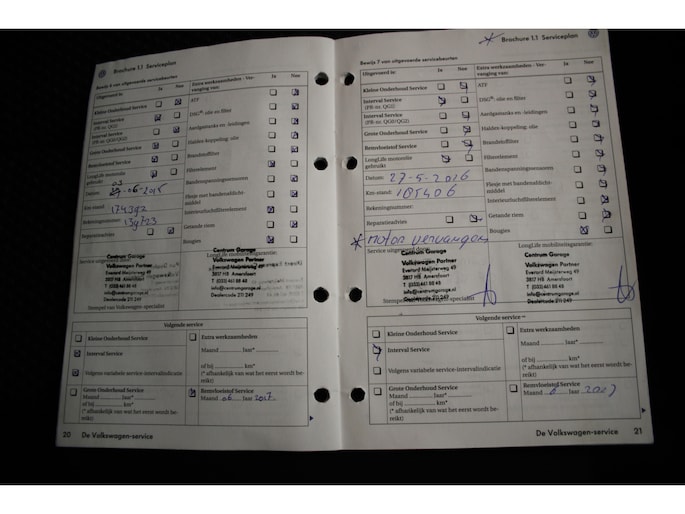 Brochure 1.1 Serviceplan
Bewijs 7 van uitgevoerde servicebeurten
Uitgevoerd in: Ja Nee
Kleine Onderhoud Service
Interval Service
(PR-nr. QG1)
Interval Service
(PR-nr. QG0/QG2)
Grote Onderhoud Service
Remvloeistof Service
LongLife motorolie
gebruikt
Datum:
Km-stand: 174392
Rekeningnummer: 139723
Reparatieadvies
Extra werkzaamheden - Ver-
vanging van: Ja Nee
ATF
DSG®: olie en filter
Aardgastanks en -leidingen
Haldex-koppeling: olie
Brandstoffilter
Filterelement
Bandenspanningssensoren
Flesje met bandenafdicht-
middel
Interieurluchtfilterelement
Getande riem
Bougies
Centrum Garage
Volkswagen Partner
Everard Meijsterweg 49
3817 HB Amersfoort
T (033) 461 88 48
info@centrumgarage.nl
Dealercode 211 249
Stempel van Volkswagen-specialist
LongLife mobiliteitsgarantie:
Volgende service
Kleine Onderhoud Service
Interval Service
Volgens variabele service-intervalindicatie
Extra werkzaamheden
Maand ........ Jaar*
of bij ........ km*
(* afhankelijk van wat het eerst wordt be-
reikt)
Grote Onderhoud Service
Maand ........ Jaar*
of bij ........ km*
(* afhankelijk van wat het eerst wordt be-
reikt)
Remvloeistof Service
Maand 06 Jaar 2017
20 De Volkswagen-service
* Brochure 1.1 Serviceplan
Bewijs 7 van uitgevoerde servicebeurten
Uitgevoerd in: Ja Nee
Kleine Onderhoud Service
Interval Service
(PR-nr. QG1)
Interval Service
(PR-nr. QG0/QG2)
Grote Onderhoud Service
Remvloeistof Service
LongLife motorolie
gebruikt
Datum: 27-5-2016
Km-stand: 185406
Rekeningnummer:
Reparatieadvies
* motor vervangen
Extra werkzaamheden - Ver-
vanging van: Ja Nee
ATF
DSG®: olie en filter
Aardgastanks en -leidingen
Haldex-koppeling: olie
Brandstoffilter
Filterelement
Bandenspanningssensoren
Flesje met bandenafdicht-
middel
Interieurluchtfilterelement
Getande riem
Bougies
Service uitgevoerd door:
LongLife mobiliteitsgarantie:
Centrum Garage
Volkswagen Partner
Everard Meijsterweg 49
3817 HB Amersfoort
T (033) 461 88 48
info@centrumgarage.nl
Dealercode 211 249
Centrum Garage
Volkswagen Partner
Everard Meijsterweg 49
3817 HB Amersfoort
T (033) 461 88 48
info@centrumgarage.nl
Dealercode 211 249
Volgende service
Kleine Onderhoud Service
Interval Service
Volgens variabele service-intervalindicatie
Extra werkzaamheden
Maand ........ Jaar*
of bij ........ km*
(* afhankelijk van wat het eerst wordt be-
reikt)
Grote Onderhoud Service
Maand ........ Jaar*
of bij ........ km*
(* afhankelijk van wat het eerst wordt be-
reikt)
Remvloeistof Service
Maand 6 Jaar
De Volkswagen-service 21